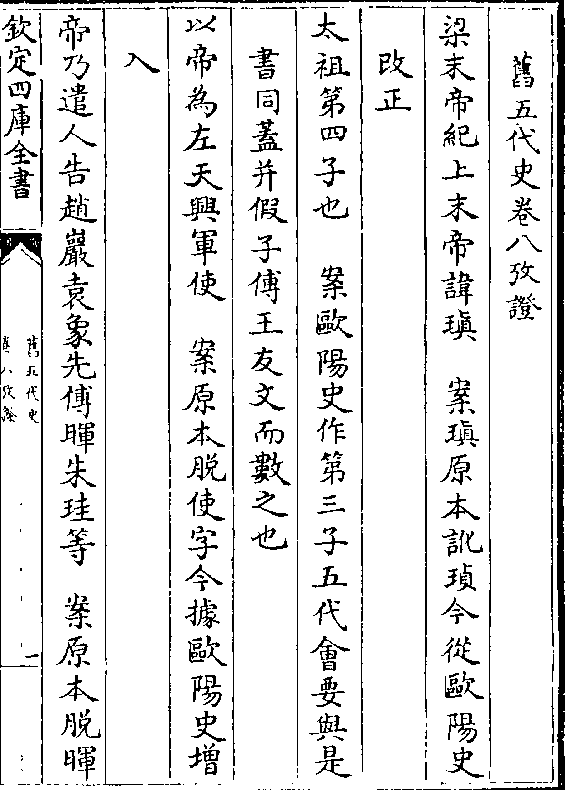 舊五代史卷八攷證
梁末帝紀上末帝諱瑱　案瑱原本訛頊今從歐陽史
改正
太祖第四子也　案歐陽史作第三子五代會要與是
書同蓋并假子博王友文而數之也
以帝為左天興軍使　案原本脱使字今據歐陽史増
入
帝乃遣人告趙巖袁象先傅暉朱珪等　案原本脱暉
欽定四庫全書
舊五代史
卷八攷證
一